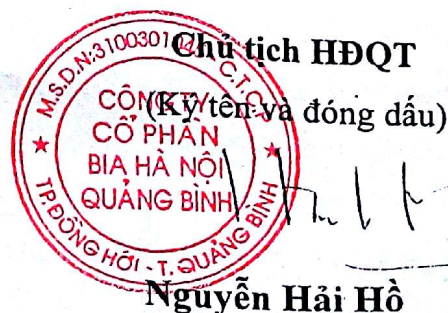 Chủ tịch HĐQT
(Ký tên và đóng dấu)
M.S.D.N:3100301 C.T.C.P
CÔNG TY
CỔ PHẦN
BIA HÀ NỘI
QUẢNG BÌNH
TP.ĐỒNG HỚI - T. QUẢNG BÌNH
Nguyễn Hải Hồ